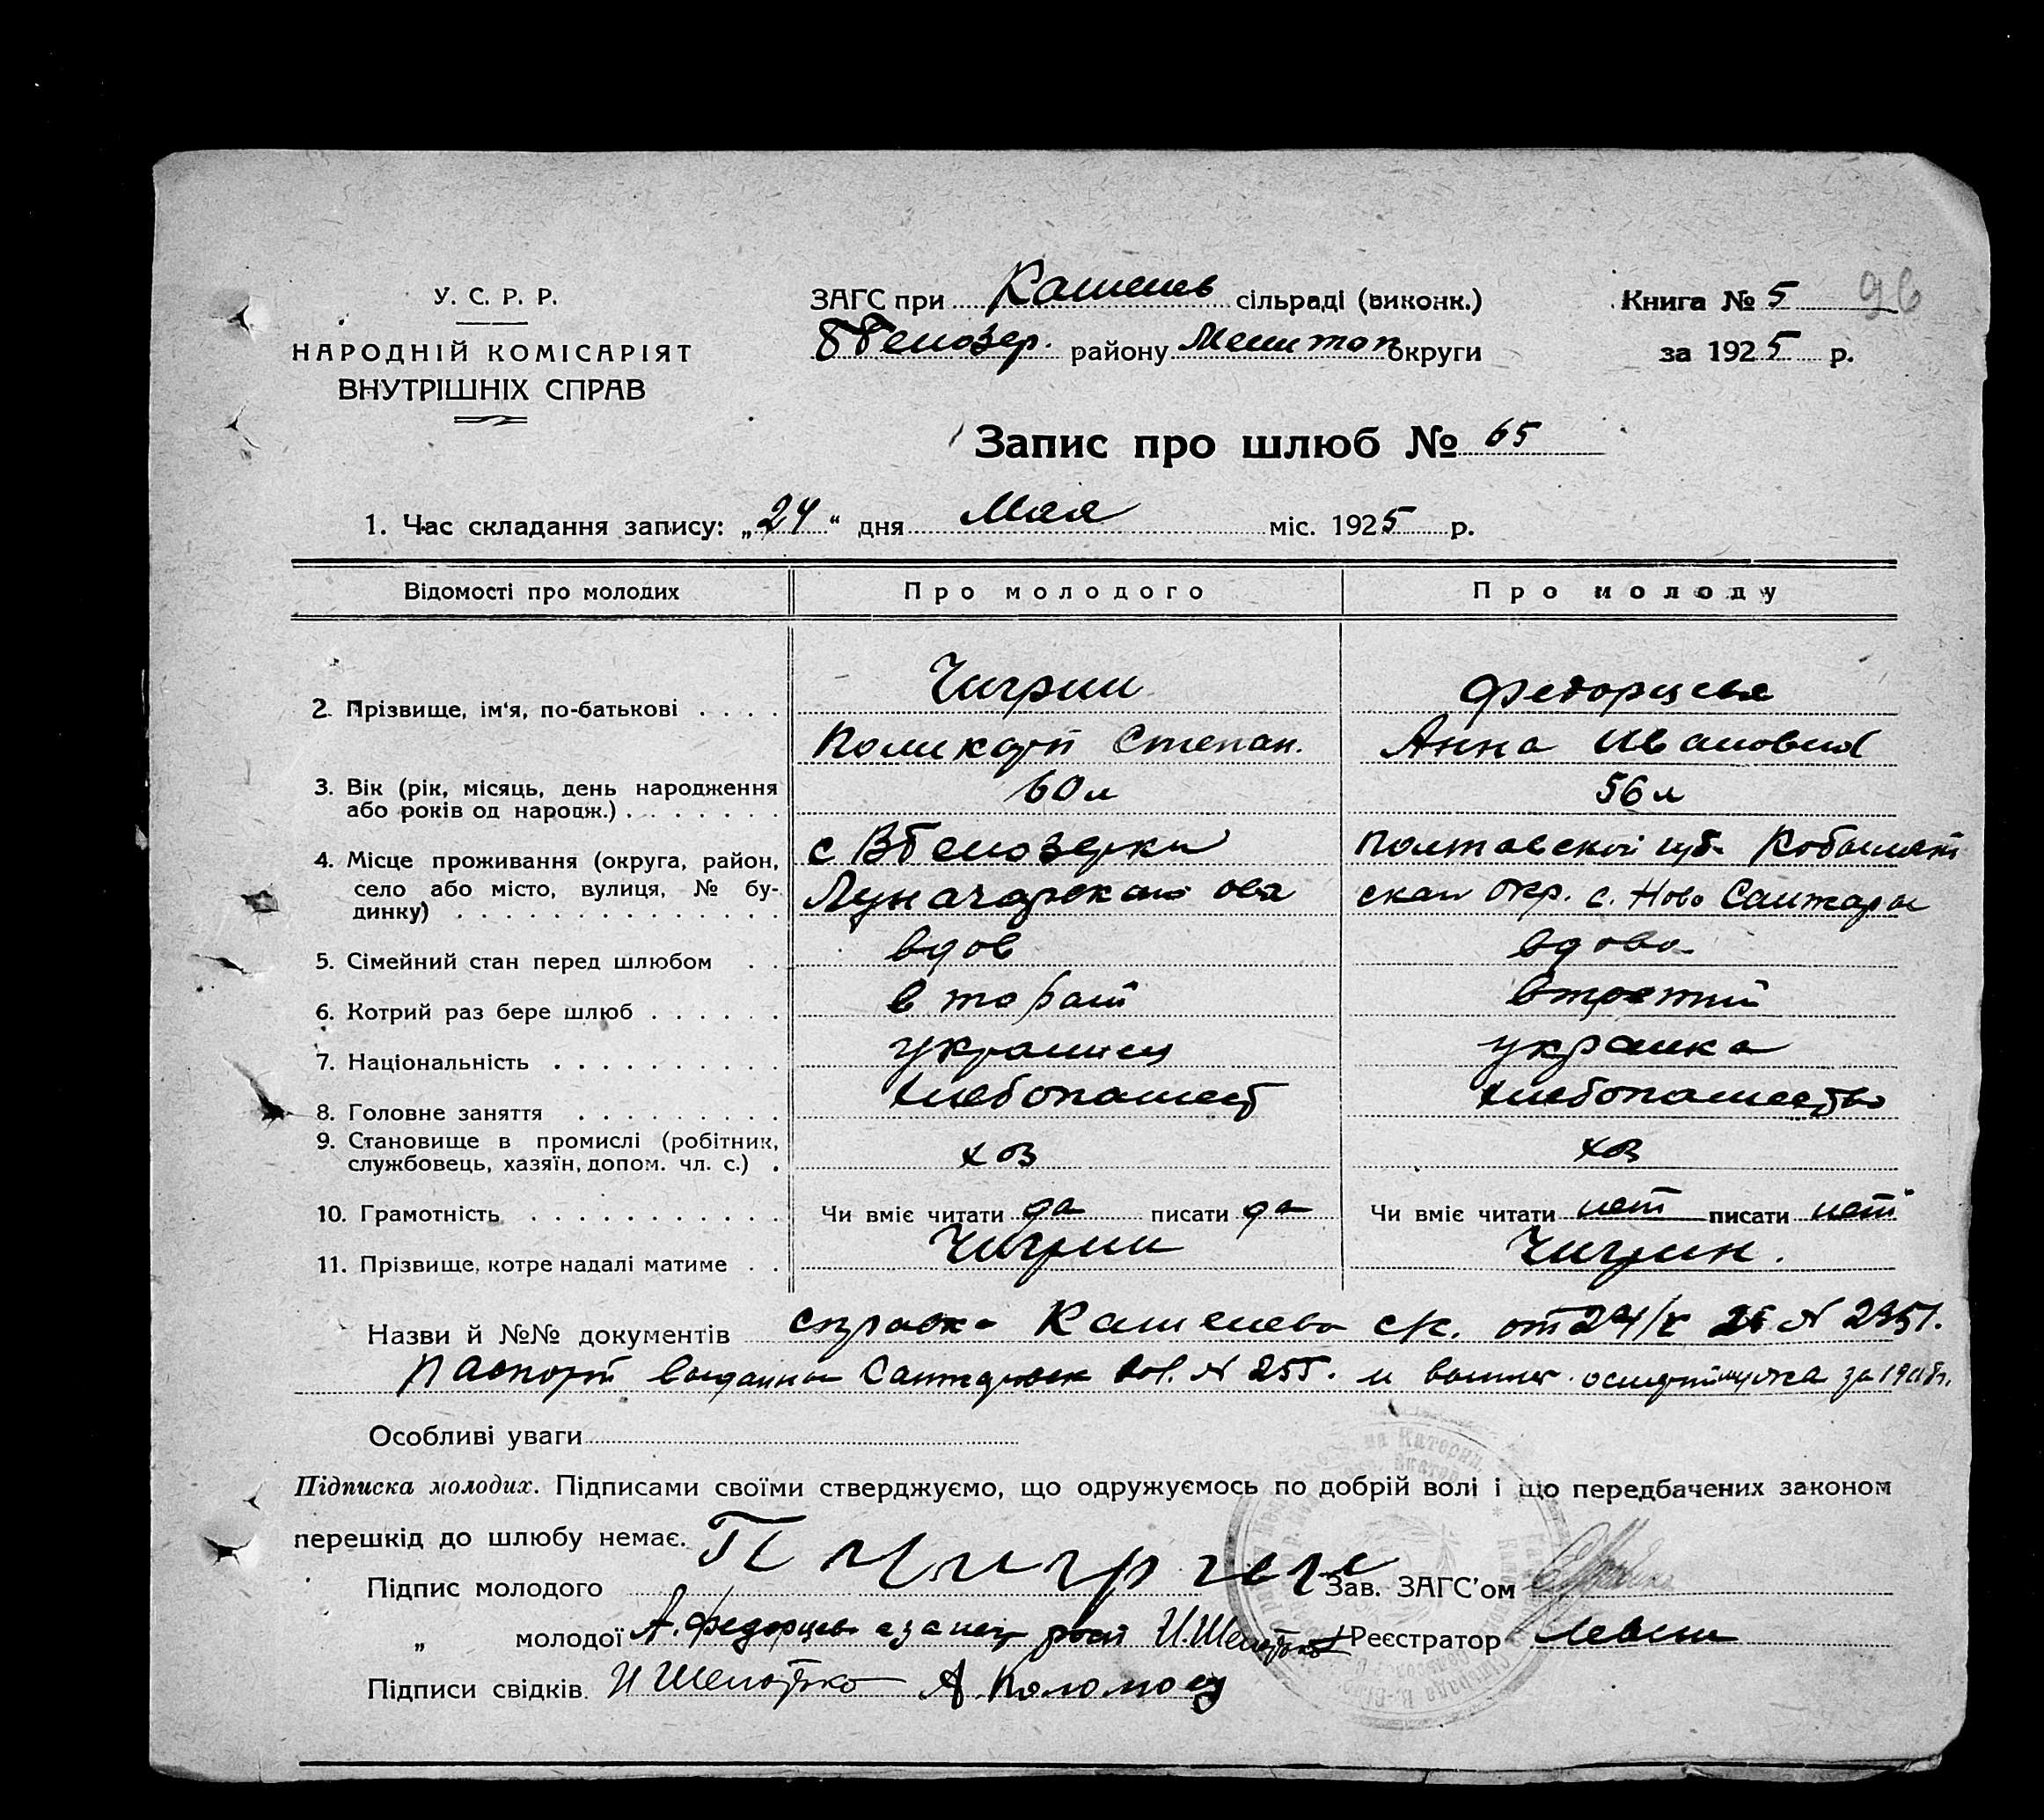 У. С. Р. Р.
НАРОДНІЙ КОМІСАРІЯТ
ВНУТРІШНІХ СПРАВ
ЗАГС при сільраді (виконк.)
Книга № 5 96
району Мелитоп округи
за 1925 р.
Запис про шлюб № 65
1. Час складання запису: „24“ дня Мая міс. 1925 р.
Відомості про молодих Про молодого Про молоду
2. Прізвище, ім'я, по-батькові . . . . Чигрин Федорцева
Поликарп Степан. Анна Ивановна
3. Вік (рік, місяць, день народження 60 л 56 л
або років од народж.) . . . . . . .
4. Місце проживання (округа, район, с ВБелозерки Полтавской губ.
село або місто, вулиця, № бу-
динку) . . . . . . . . . . . . . . Луначарского окр. с. Ново Санжары
5. Сімейний стан перед шлюбом . . вдов вдова
6. Котрий раз бере шлюб . . . . . . вторай втретий
7. Національність . . . . . . . . . . украинец украинка
8. Головне заняття . . . . . . . . . хлебопашест хлебопашество
9. Становище в промислі (робітник, хоз хоз
службовець, хазяїн, допом. чл. с.) .
10. Грамотність . . . . . . . . . . . Чи вміє читати да писати да Чи вміє читати нет писати нет
11. Прізвище, котре надалі матиме . . Чигрин Чигрин.
Назви й №№ документів справка от 24/V 25 № 2351.
Паспорт № 255. и за
Особливі уваги
Підписка молодих. Підписами своїми стверджуємо, що одружуємось по добрій волі і що передбачених законом
перешкід до шлюбу немає.
Підпис молодого П Чигрин Зав. ЗАГС'ом
„ молодої А. Федорцева а за нее И. Реєстратор
Підписи свідків. И А.